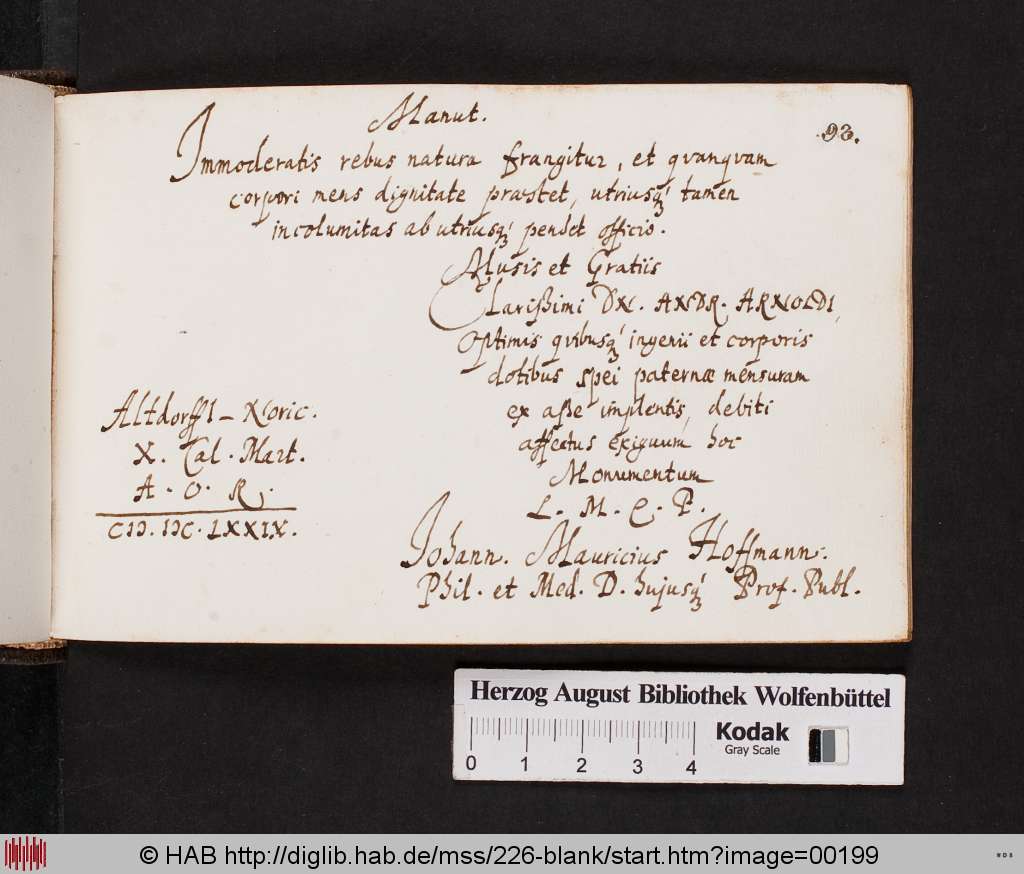 Manut.
93.
Immoderatis rebus natura frangitur, et qvanqvam
corpori mens dignitate præstet, utriusq́ꝫ tamen
incolumitas ab utriusq́ꝫ pendet officio.
Musis et Gratiis
Clarißimi DN. ANDR. ARNOLDI,
optimis qvibusq́ꝫ ingenii et corporis
dotibus spei paternæ mensuram
ex aße implentis, debiti
affectus exiguum hoc
Monumentum
L. M. Q. P.
Johann. Mauricius Hoffmann.
Phil. et Med. D. hujusq́ꝫ Prof. Publ.
AltdorffI - Noric.
X. Cal. Mart.
A. O. R.
CIↃ. IↃC. LXXIX.
Herzog August Bibliothek Wolfenbüttel
Kodak
Gray Scale
0 1 2 3 4
© HAB http://diglib.hab.de/mss/226-blank/start.htm?image=00199